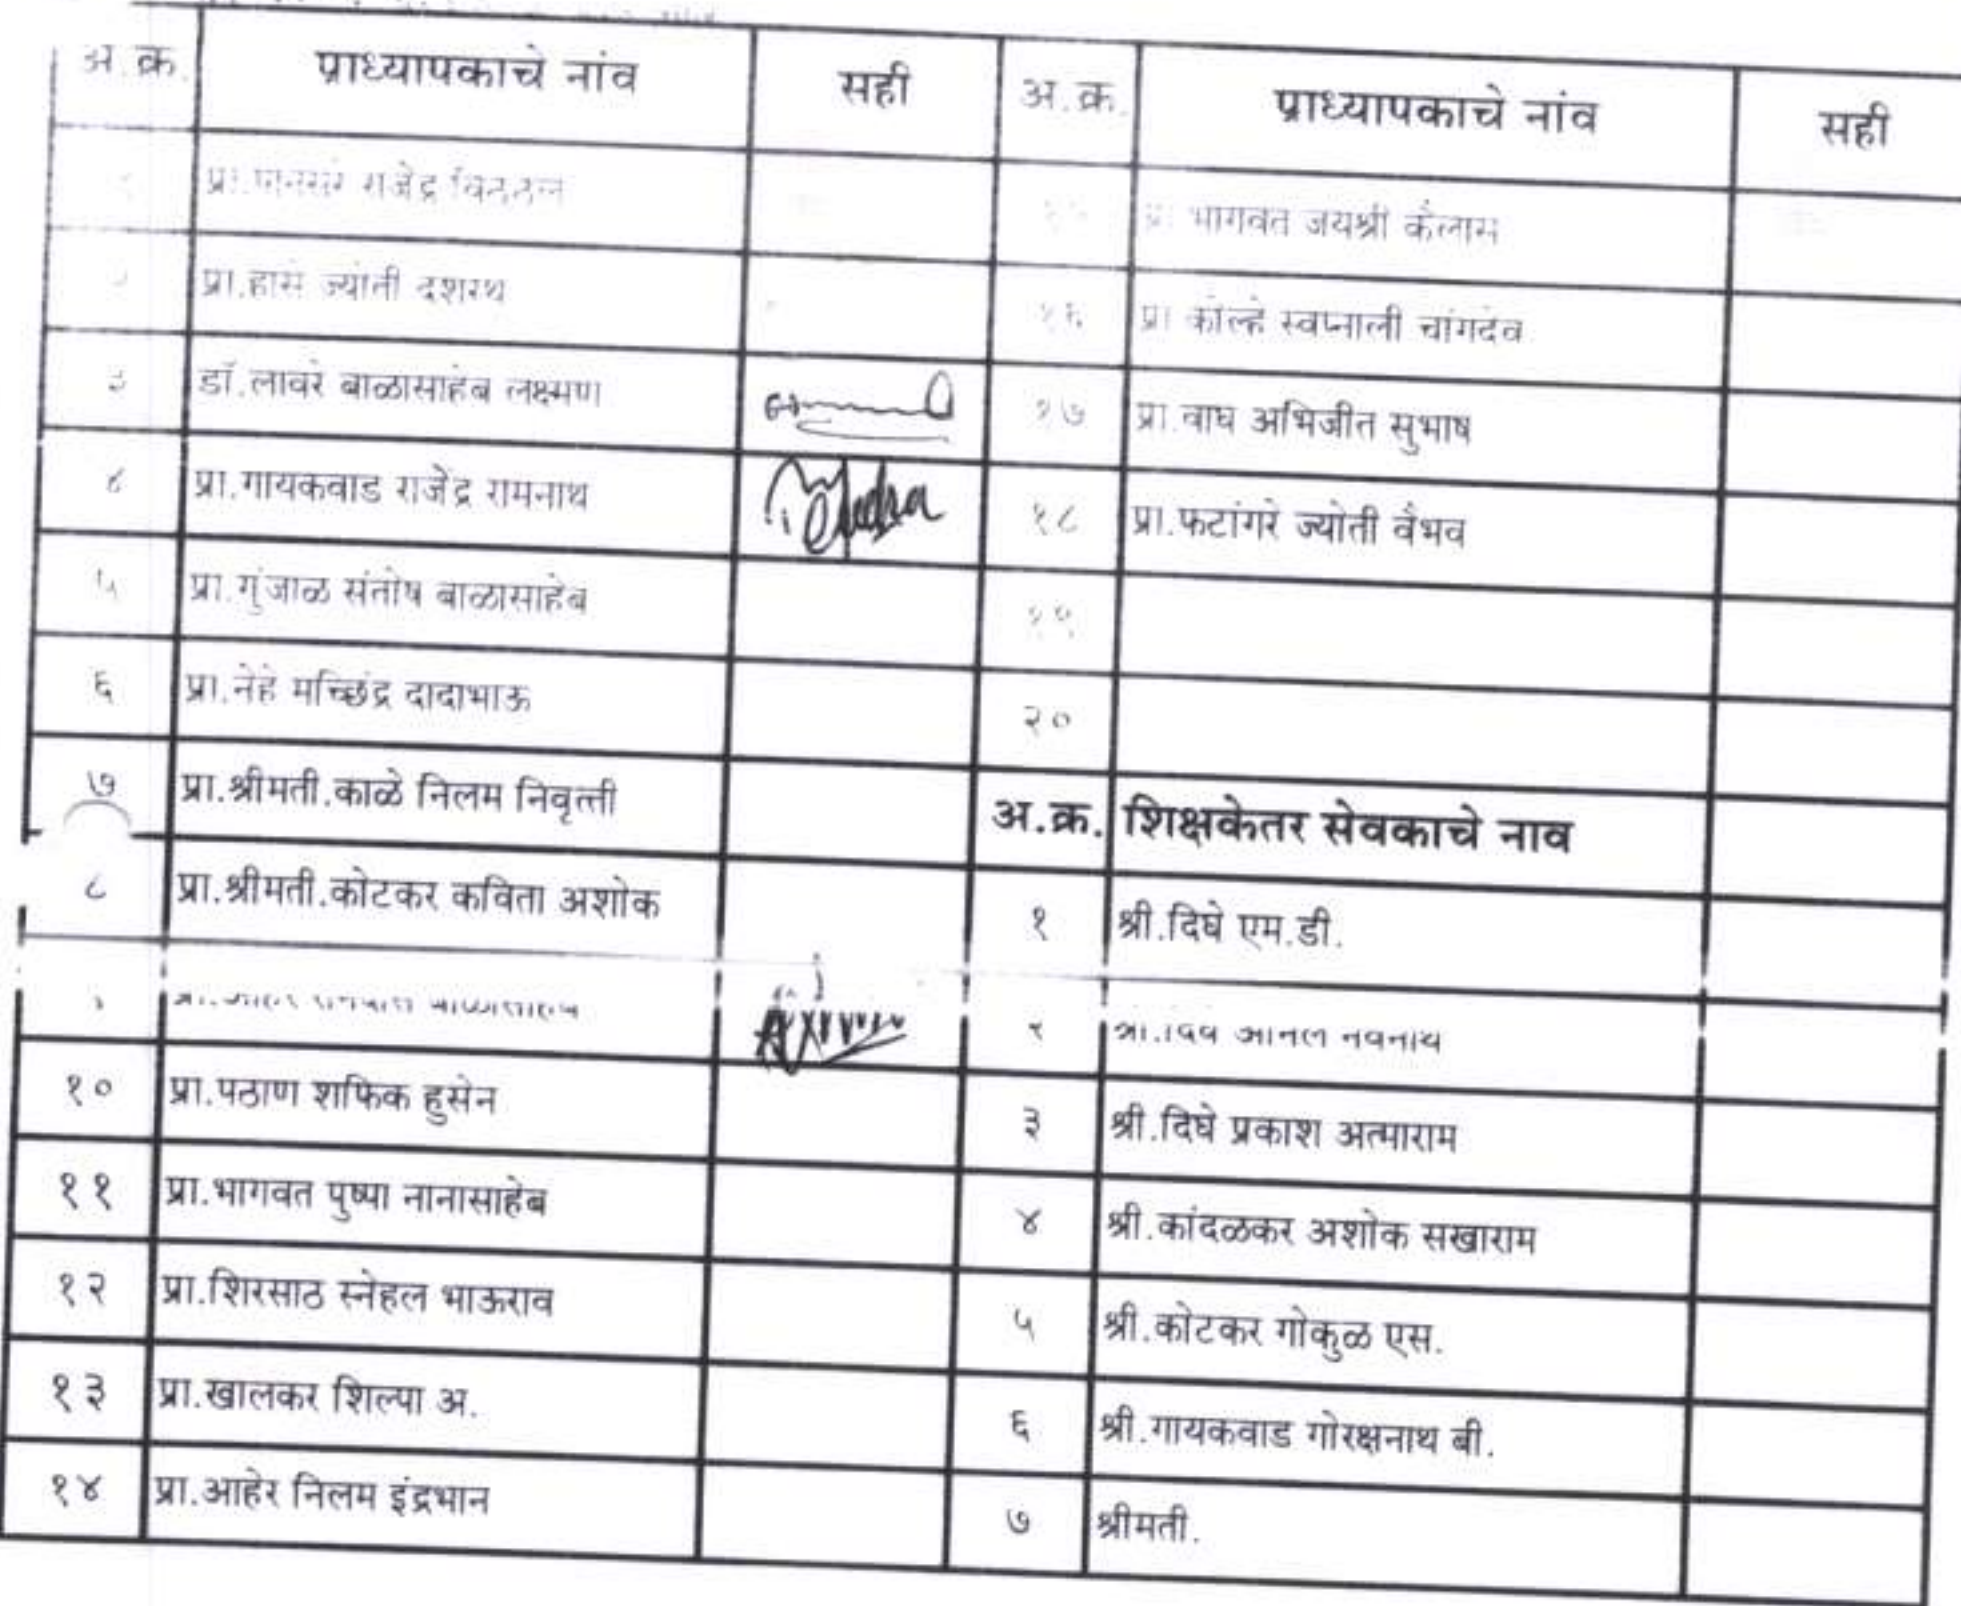 अ.क्र. प्राध्यापकाचे नांव सही अ.क्र. प्राध्यापकाचे नांव सही
राजेंद्र
प्रा.भागवत जयश्री कैलास
प्रा.हासे ज्योती दशरथ
१६ प्रा.कोल्हे स्वप्नाली चांगदेव
३ डॉ.लावरे बाळासाहेब लक्ष्मण
१७ प्रा.वाघ अभिजीत सुभाष
४ प्रा.गायकवाड राजेंद्र रामनाथ
१८ प्रा.फटांगरे ज्योती वैभव
५ प्रा.गुंजाळ संतोष बाळासाहेब
१९
६ प्रा.नेहे मच्छिंद्र दादाभाऊ
२०
७ प्रा.श्रीमती.काळे निलम निवृत्ती
अ.क्र. शिक्षकेतर सेवकाचे नाव
८ प्रा.श्रीमती.कोटकर कविता अशोक
१ श्री.दिघे एम.डी.
नवनाथ
१० प्रा.पठाण शफिक हुसेन
३ श्री.दिघे प्रकाश अत्माराम
११ प्रा.भागवत पुष्पा नानासाहेब
४ श्री.कांदळकर अशोक सखाराम
१२ प्रा.शिरसाठ स्नेहल भाऊराव
५ श्री.कोटकर गोकुळ एस.
१३ प्रा.खालकर शिल्पा अ.
६ श्री.गायकवाड गोरक्षनाथ बी.
१४ प्रा.आहेर निलम इंद्रभान
७ श्रीमती.